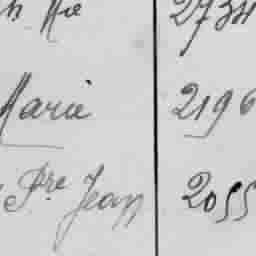 Mie 2734
Marie 2196
Pre Jean 2055